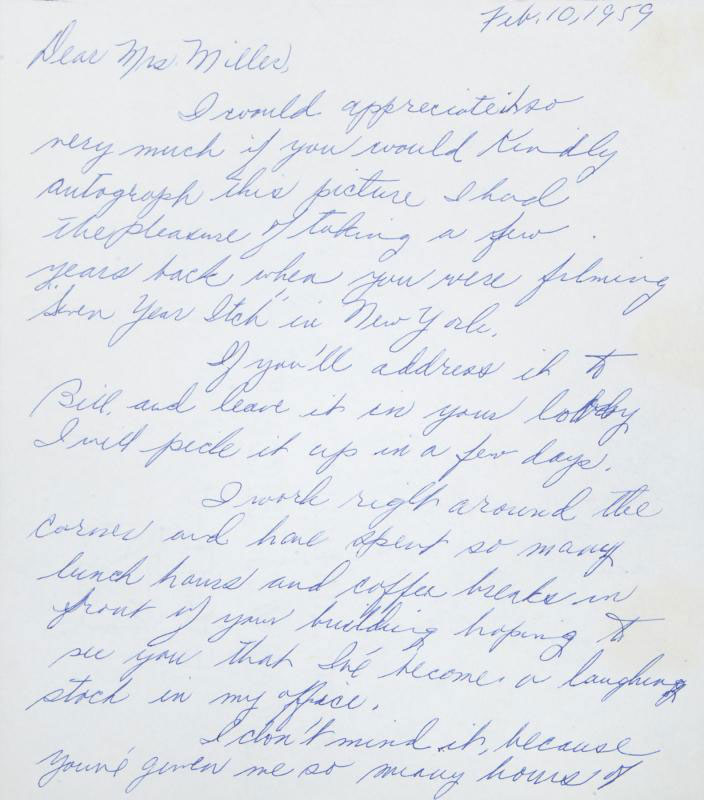 Feb. 10, 1959
Dear Mrs. Miller,
I would appreciate it so
very much if you would kindly
autograph this picture I had
the pleasure of taking a few
years back when you were filming
"Seven Year Itch" in New York.
If you'll address it to
Bill, and leave it in your lobby
I will pick it up in a few days.
I work right around the
corner and have spent so many
lunch hours and coffee breaks in
front of your building hoping to
see you that I've become a laughing
stock in my office.
I don't mind it, because
you've given me so many hours of